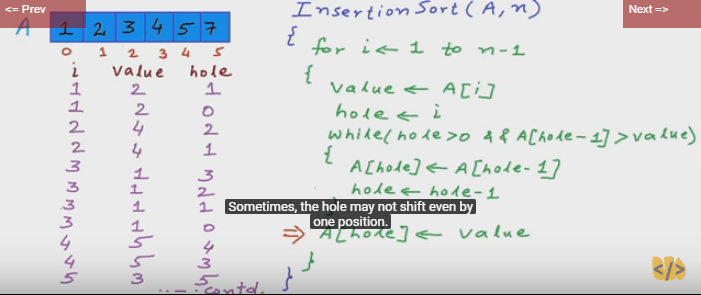 <= Prev
Next =>
A 1 2 3 4 5 7
0 1 2 3 4 5
i value hole
1 2 1
1 2 0
2 4 2
2 4 1
3 1 3
3 1 2
3 1 1
3 1 0
4 5 4
4 5 3
5 3 5
... contd.
InsertionSort(A, n)
{
for i ← 1 to n-1
{
value ← A[i]
hole ← i
while(hole > 0 && A[hole-1] > value)
{
A[hole] ← A[hole-1]
hole ← hole-1
Sometimes, the hole may not shift even by
one position.
⇒ A[hole] ← value
}
}
</>